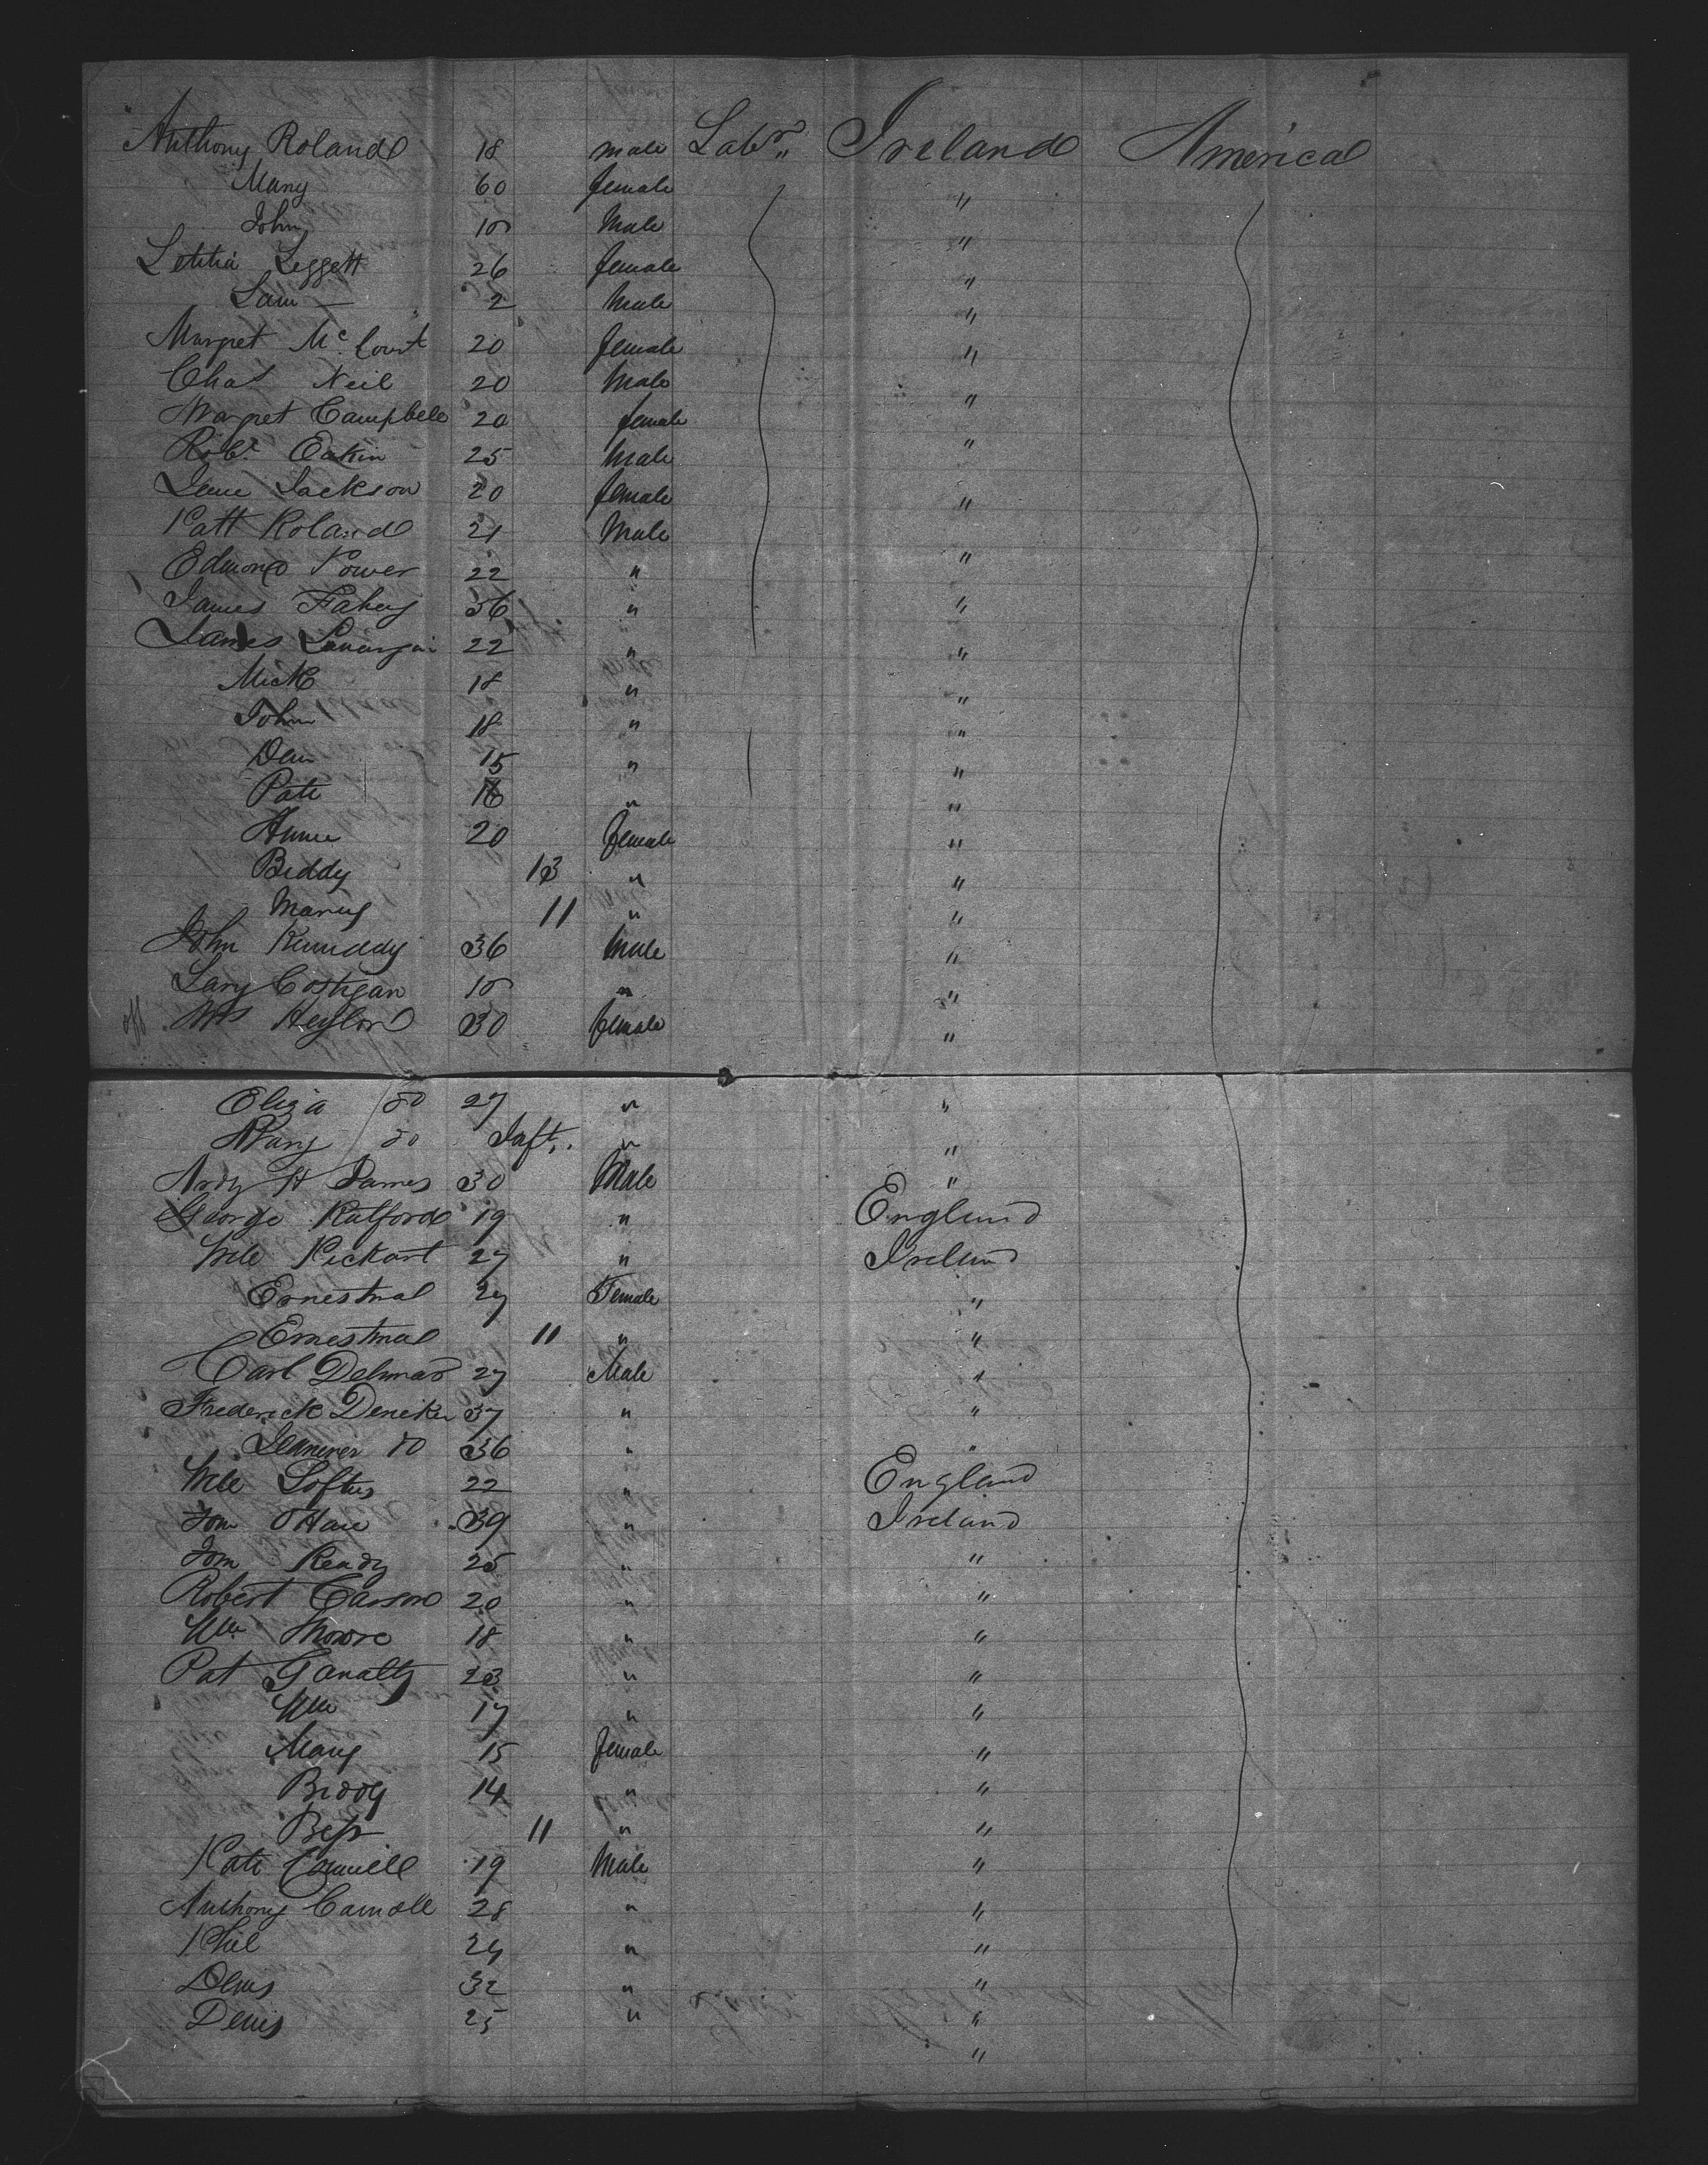 Anthony Roland 18 male Labr. Ireland America
Mary 60 female "
John 10 Male "
Letitia Leggett 26 female "
Sam — 2 Male "
Margret Mc. Court 20 female "
Chas Neil 20 Male "
Margret Campbell 20 female "
Robt. Eakin 25 Male
Jane Jackson 20 female "
Patt Roland 21 Male "
Edmond Power 22 " "
James Fahey 36 " "
James 22 " "
Mick 18 " "
John 18 " "
Dan 15 " "
Patt 16 " "
Annie 20 female "
Biddy 13 " "
Mary 11 " "
John Kennedy 36 Male "
Lary Costigan 10 " "
Mrs Heylord 30 female "
Eliza do 27 " "
Mary do Inft. " "
Andy St James 30 Male "
George Ratford 19 " England
Wm Pickart 27 " Ireland
Ernestmal 27 Female "
Ernestmal 11 " "
Carl Delmar 27 Male "
Frederick Deneker 37 " "
do 36 " "
Wm Loftus 22 " England
Tom OHare 39 " Ireland
Tom Ready 25 " "
Robert Carson 20 " "
Wm Moore 18 " "
Pat Ganalty 23 " "
Wm 17 " "
Mary 15 female "
Biddy 14 " "
Bess 11 " "
Patt Connell 19 Male "
Anthony 28 " "
Phil 24 " "
Denis 32 " "
Denis 25 " "
"